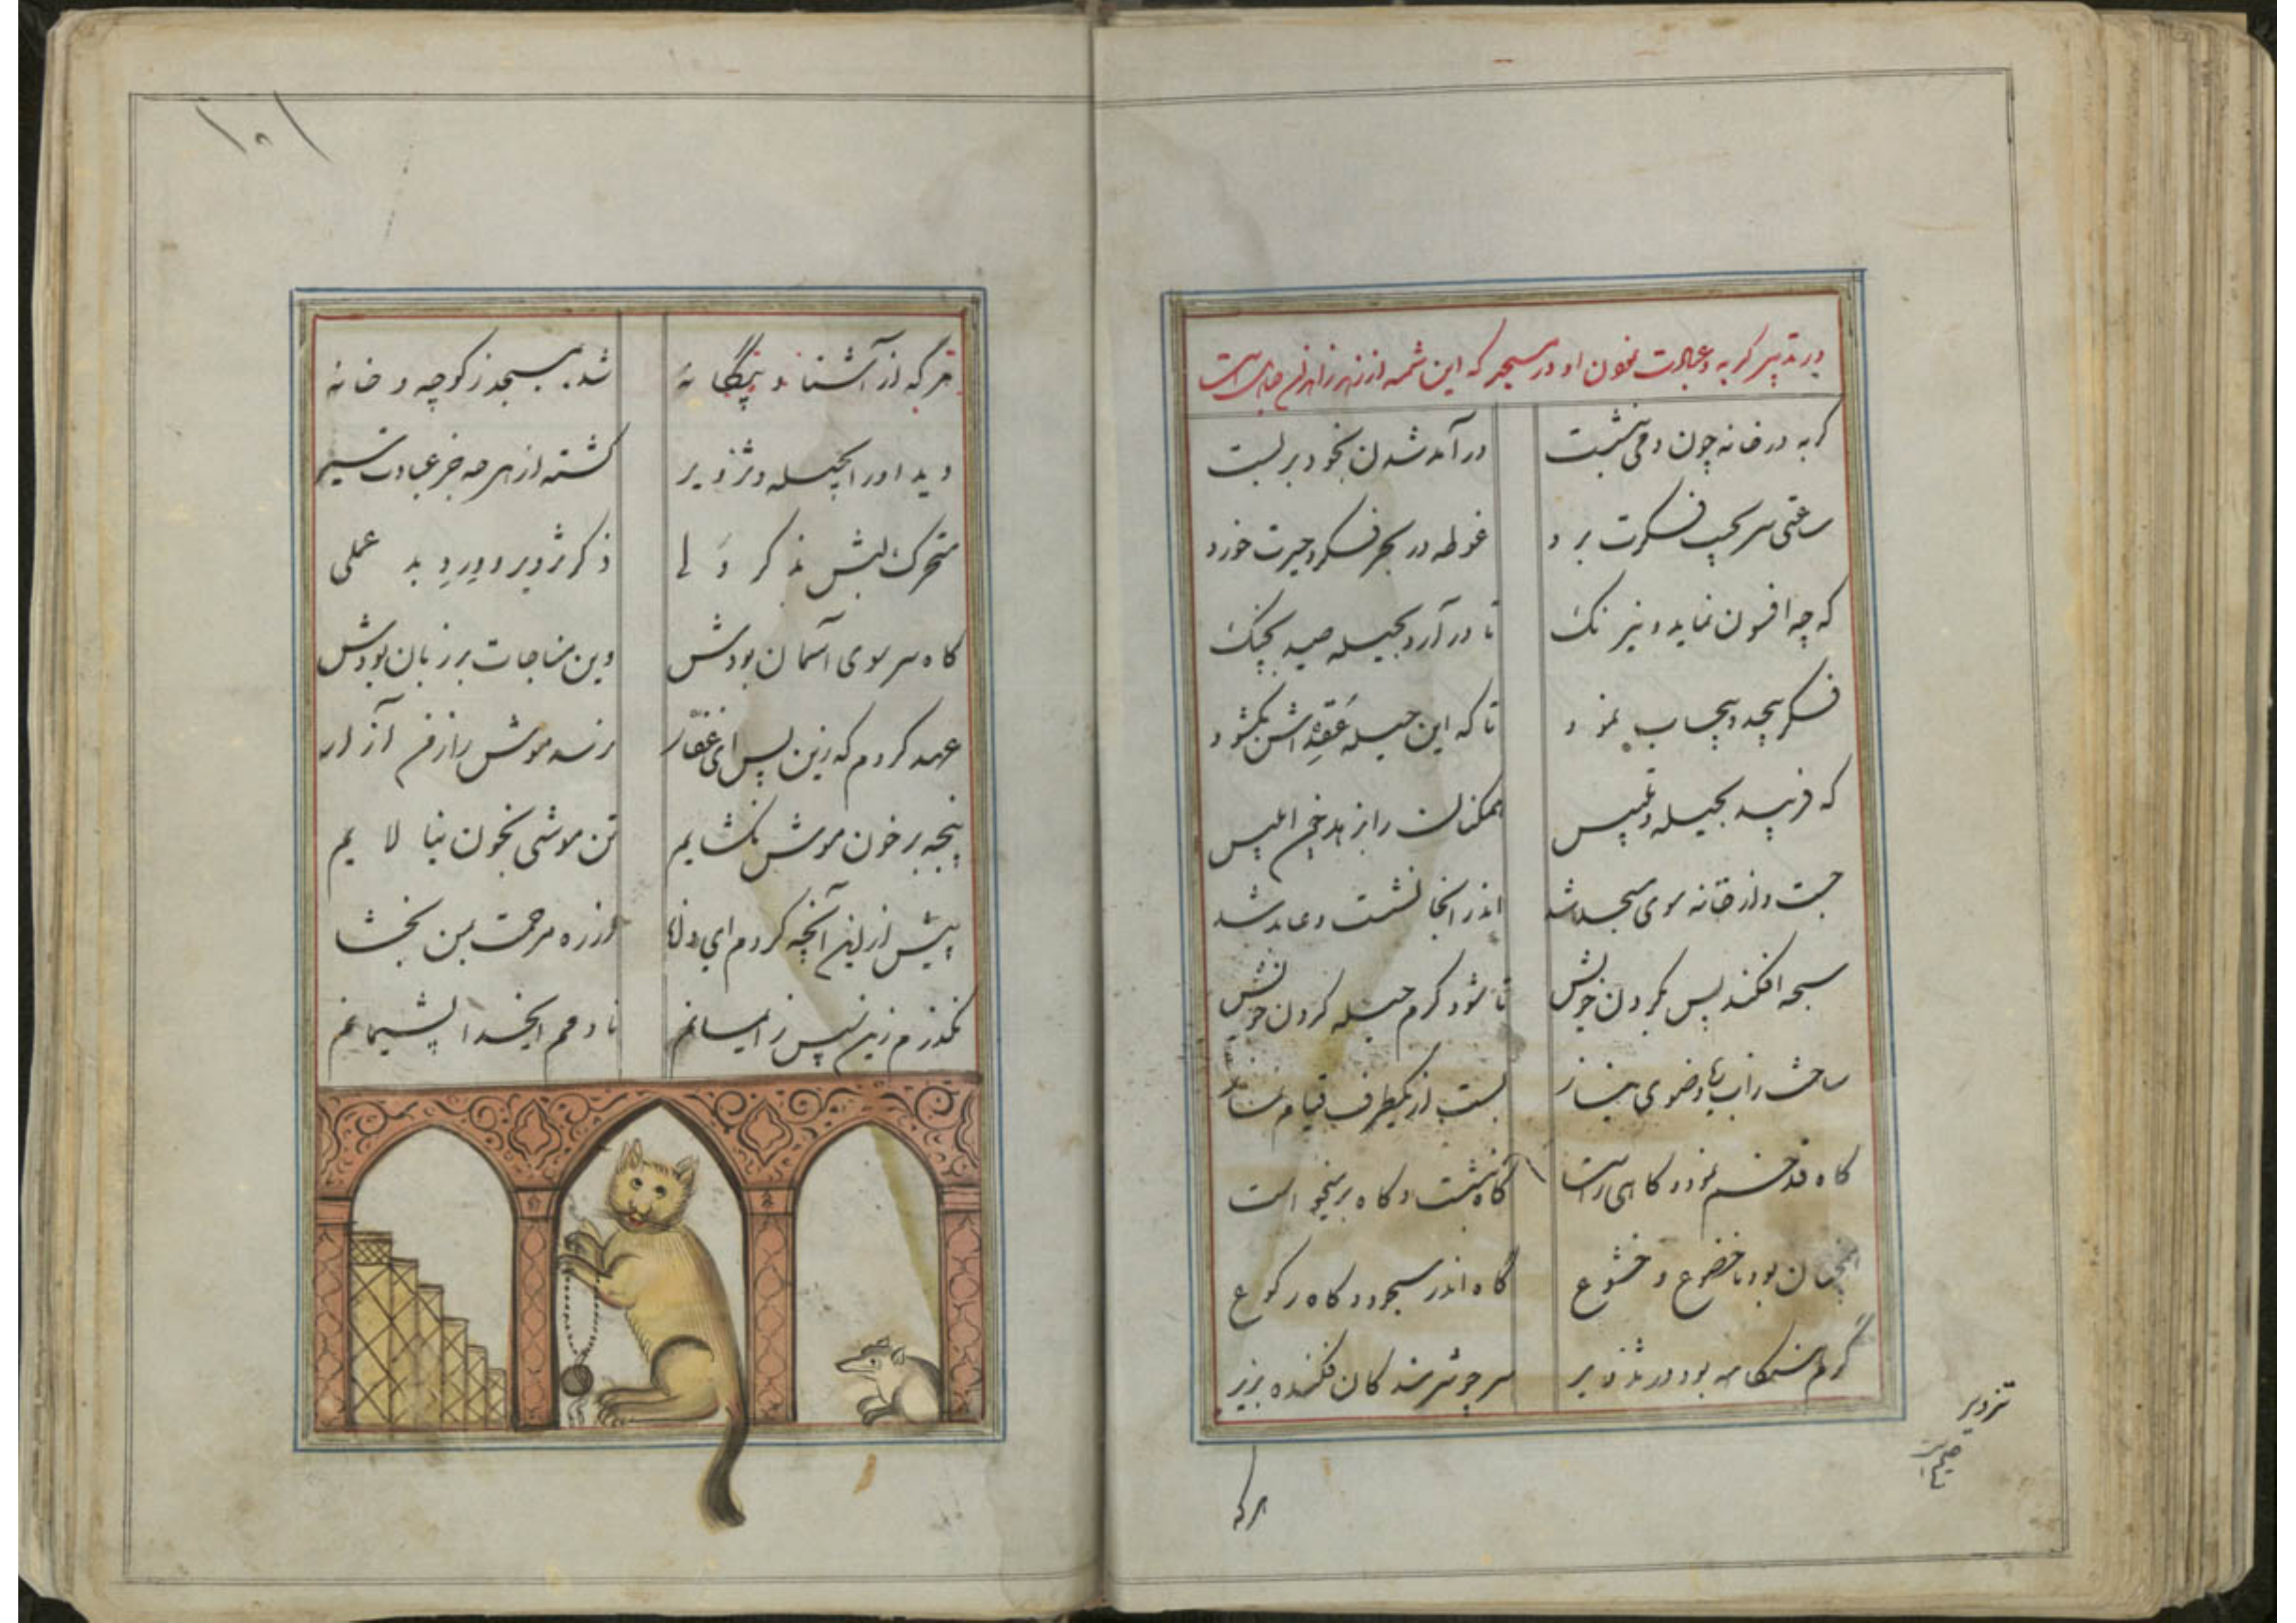 در تدبیر گربه و عبادت نمودن او در مسجد که این شمه از زهد زاهدان جاهل است
گربه در خانه چون دمی بنشست در آمد شدن بخود بر بست
ساعتی سر بجیب فکرت برد غوطه در بحر فکر و حیرت خورد
که چه افسون نماید و نیرنگ تا در آرد بحیله صید بچنگ
فکر بیحد و بیحساب نمود تا که این حیله عقده اش بگشود
که فریبد بحیله و تلبیس همکنان را بزهد چون ابلیس
جست و از خانه سوی مسجد شد اندر آنجا نشست و عابد شد
سبحه افکند پس بگردن خویش تا شود گرم حیله کردن خویش
ساخت از آب پا وضوی نیاز بست از یکطرف قیام نماز
گاه قد خم نمود و گاهی راست گاه بنشست و گاه بر میخواست
آنچنان بود با خضوع و خشوع گاه اندر سجود و گاه رکوع
گرم هنگامه بود در تذویر سر چو شرمندگان فکنده بزیر
تزویر
صحیح است
هرکه
۱۰۱
هرکه از آشنا و بیگانه شد بمسجد ز کوچه و خانه
دید او را بحیله و تزویر گشته از هرچه جز عبادت سیر
متحرک لبش بذکر ولی ذکر تزویر و ورد بد عملی
گاه سر سوی آسمان بودش وین مناجات بر زبان بودش
عهد کردم که زین پس ای غفار نرسد موش را ز من آزار
پنجه بر خون موش نگشایم تن موشی بخون نیالایم
پیش از این آنچه کردم ای دانا از ره مرحمت بمن بخشا
بگذرم زین سپس ز ایمانم نادمم ایخدا پشیمانم